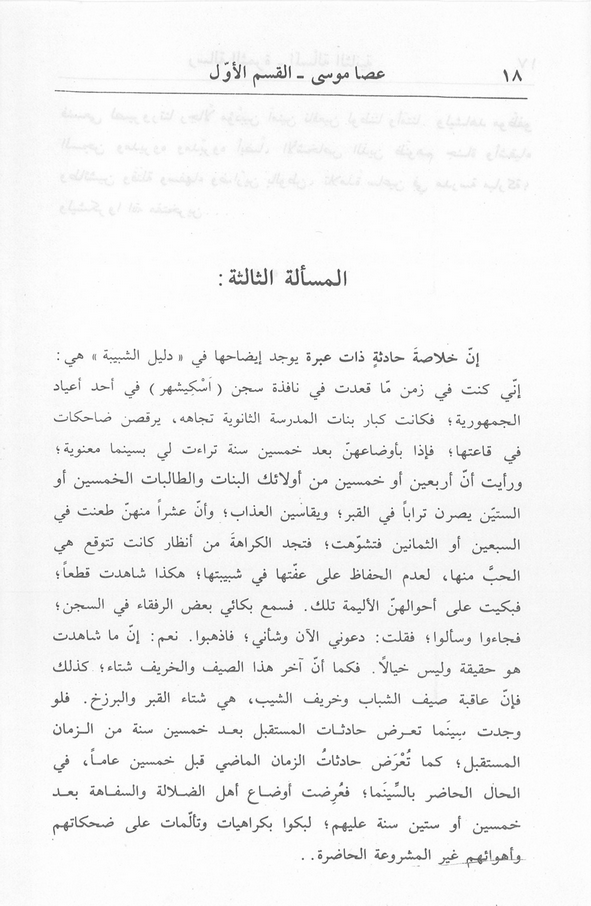 ١٨ عصا موسى - القسم الأوّل
المسألة الثالثة :
إنّ خلاصةَ حادثةٍ ذات عبرة يوجد إيضاحها في « دليل الشبيبة » هي :
إنّي كنت في زمن مّا قعدت في نافذة سجن ( اَسْكِيشهر ) في أحد أعياد
الجمهورية؛ فكانت كبار بنات المدرسة الثانوية تجاهه، يرقصن ضاحكات
في قاعتها؛ فإذا بأوضاعهنّ بعد خمسين سنة تراءت لي بسينما معنوية؛
ورأيت أنّ أربعين أو خمسين من أولائك البنات والطالبات الخمسين أو
الستيّن يصرن تراباً في القبر؛ ويقاسين العذاب؛ وأنّ عشراً منهنّ طعنت في
السبعين أو الثمانين فتشوّهت؛ فتجد الكراهةَ من أنظار كانت تتوقع هي
الحبَّ منها، لعدم الحفاظ على عفّتها في شبيبتها؛ هكذا شاهدت قطعاً؛
فبكيت على أحوالهنّ الأليمة تلك. فسمع بكائي بعض الرفقاء في السجن؛
فجاءوا وسألوا؛ فقلت: دعوني الآن وشأني؛ فاذهبوا. نعم: إنّ ما شاهدت
هو حقيقة وليس خيالاً. فكما أنّ آخر هذا الصيف والخريف شتاء؛ كذلك
فإنّ عاقبة صيف الشباب وخريف الشيب، هي شتاء القبر والبرزخ. فلو
وجدت سِينَما تعرض حادثات المستقبل بعد خمسين سنة من الزمان
المستقبل؛ كما تُعْرَض حادثاتُ الزمان الماضي قبل خمسين عاماً، في
الحال الحاضر بالسِّينَما؛ فعُرِضت أوضاع أهل الضلالة والسفاهة بعد
خمسين أو ستين سنة عليهم؛ لبكوا بكراهيات وتألّمات على ضحكاتهم
وأهوائهم غير المشروعة الحاضرة..